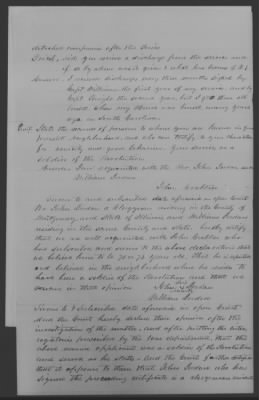 detached companies after the Tories
Fourth, did you receive a discharge from the service and
if so by whom was it given & what has become of it?
Answer. I received discharges every three months signed by
Capt Williams the first year of my service, and by
Capt Enright the second year, but I got them all
burnt when my House was burned many years
ago in South Carolina.
State the names of persons to whom you are known in your
present neighborhood, and who can testify to your character
for veracity and good behavior. Your services as a
soldier of the Revolution
Answer. I am acquainted with the Rev John Jordan and
William Jordan
John
Sworn to and subscribed date aforesaid in open Court
We John Jordan a Clergyman residing in the County of
Montgomery, and State of Illinois and William Jordan
residing in the same County and State, hereby certify
that we are well acquainted with John who
has subscribed and sworn to the above declaration that
we believe him to be 70 or 73 years old. That he is reputed
and believed in the neighborhood where he resides to
have been a soldier of the Revolution and that we
concur in that opinion
John Jordan
William Jordan
Sworn to & Subscribed date aforesaid in open Court
And the Court hereby declare their opinion after the
investigation of the matter, and after putting the inter-
rogatories prescribed by the war department, that the
above named applicant was a soldier of the Revolution
and served as he states. And the Court further certifies
that it appears to them that John Jordan who has
signed the preceding certificate is a clergyman resident